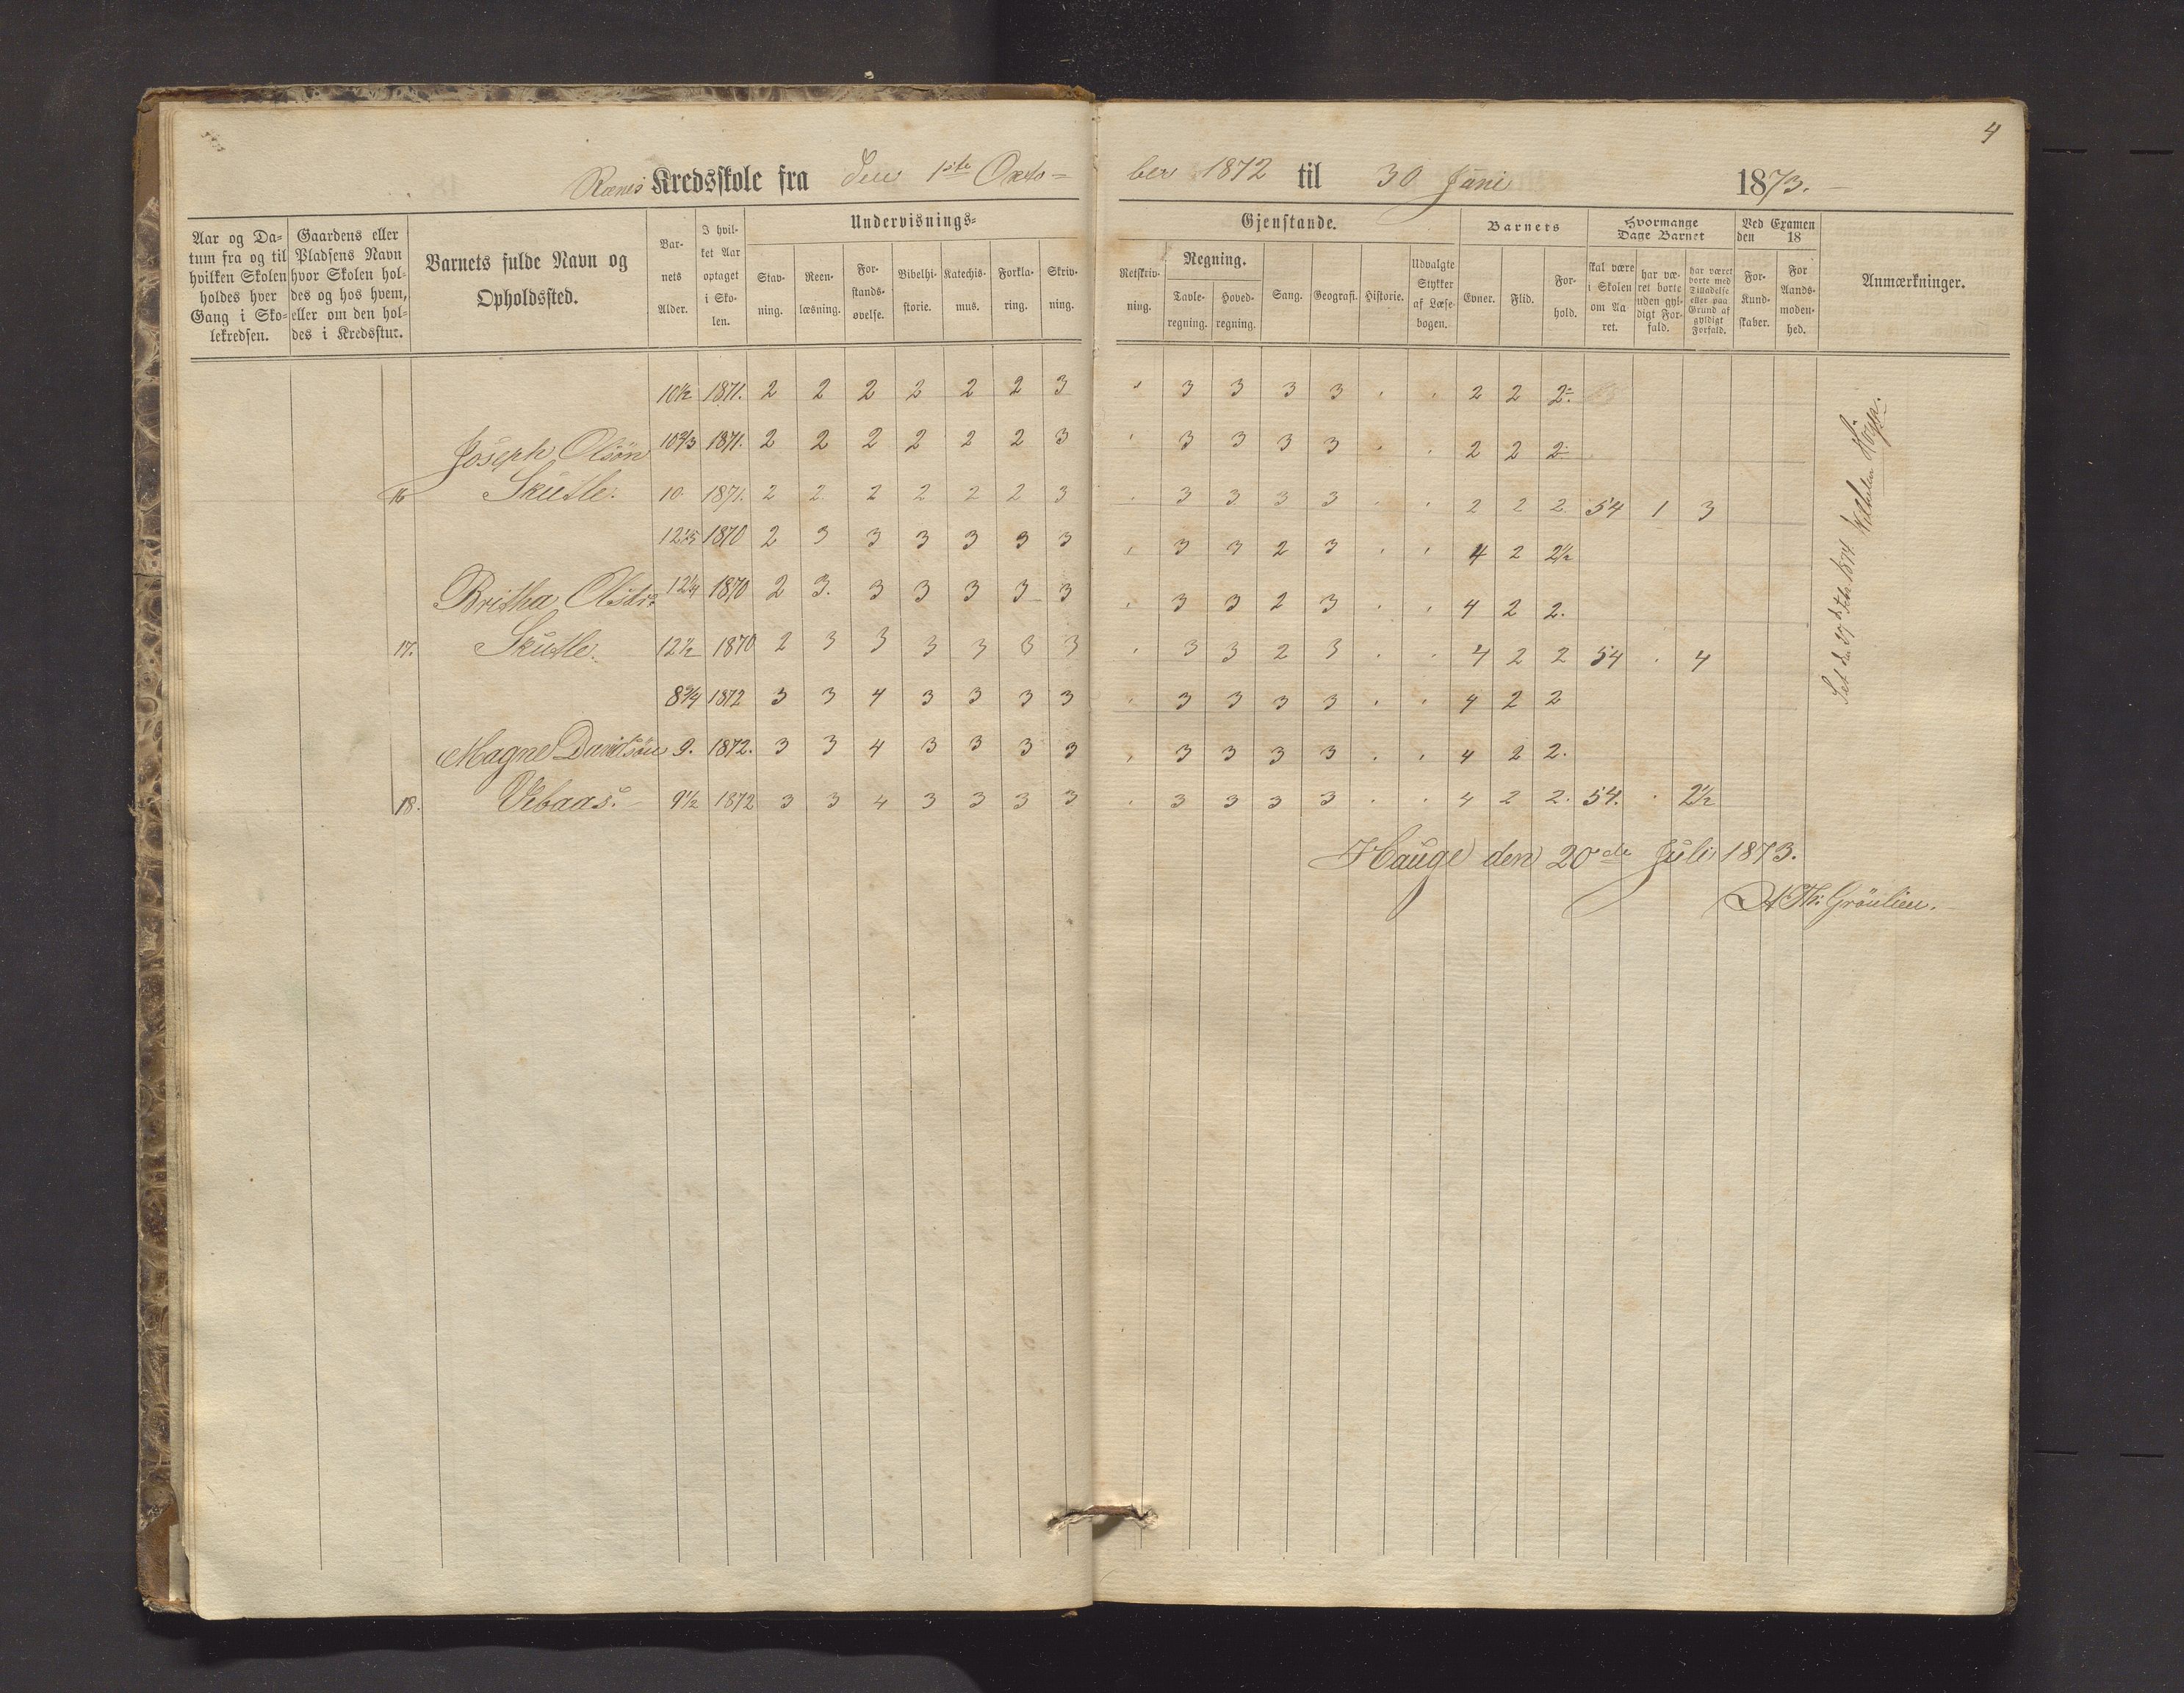 4
Rœnes Kredsskole fra den 1ste Octo= ber 1872 til 30 Juni 1873.
Aar og Da= tum fra og til hvilken Skolen holdes hver Gang i Sko= lekredsen.
Gaardens eller Pladsens Navn hvor Skolen hol= des og hos hvem, eller om den hol= des i Kredsstue.
Barnets fulde Navn og Opholdssted.
Bar= nets Alder.
I hvil= ket Aar optaget i Sko= len.
Undervisnings= Gjenstande.
Stav= ning.
Reen= læsning.
For= stands= øvelse.
Bibelhi= storie.
Katechis= mus.
Forkla= ring.
Skriv= ning.
Retskriv= ning.
Regning.
Tavle= regning.
Hoved= regning.
Sang.
Geografi.
Historie.
Udvalgte Stykker af Læse= bogen.
Barnets
Evner.
Flid.
For= hold.
Hvormange Dage Barnet
skal være i Skolen om Aa= ret.
har væ= ret borte uden gyl= digt For= fald.
har været borte med Tilladelse eller paa Grund af gyldigt Forfald.
Ved Examen den 18
For Kund= skaber.
For Aands= moden= hed.
Anmærkninger.
10½ 1871. 2 2 2 2 2 2 3 3 3 3 3 2 2 2
Joseph Olsön 10⅔ 1871. 2 2 2 2 2 2 3 3 3 3 3 2 2 2
16 Skutle. 10 1871. 2 2 2 2 2 2 3 3 3 3 3 2 2 2 54 1 3
1870 2 3 3 3 3 3 3 3 3 2 3 4 2 2½
Britha Olsdr. 12¼ 1870 2 3. 3 3 3 3 3 3 3 2 3 4 2 2.
17. Skutle. 12½ 1870 2 3 3 3 3 3 3 3 3 2 3 4 2 2 54 4
8¾ 1872 3 3 4 3 3 3 3 3 3 3 3 4 2 2
Magne Davidsön 9. 1872. 3 3 4 3 3 3 3 3 3 3 3 4 2 2.
18. Vebaas. 9½ 1872 3 3 4 3 3 3 3 3 3 3 3 4 2 2. 54. 2½
Hauge den 20de Juli 1873.
A Th: Grönlien.
Set den 27de Febr. 1874 Wilhelm Kopp.